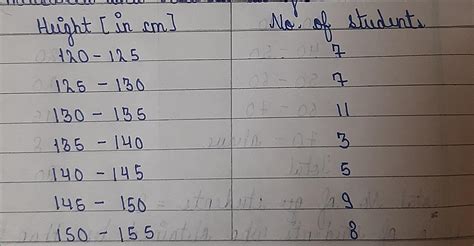 Height [in cm] No. of students
120 - 125 7
125 - 130 7
130 - 135 11
135 - 140 3
140 - 145 5
145 - 150 9
150 - 155 8